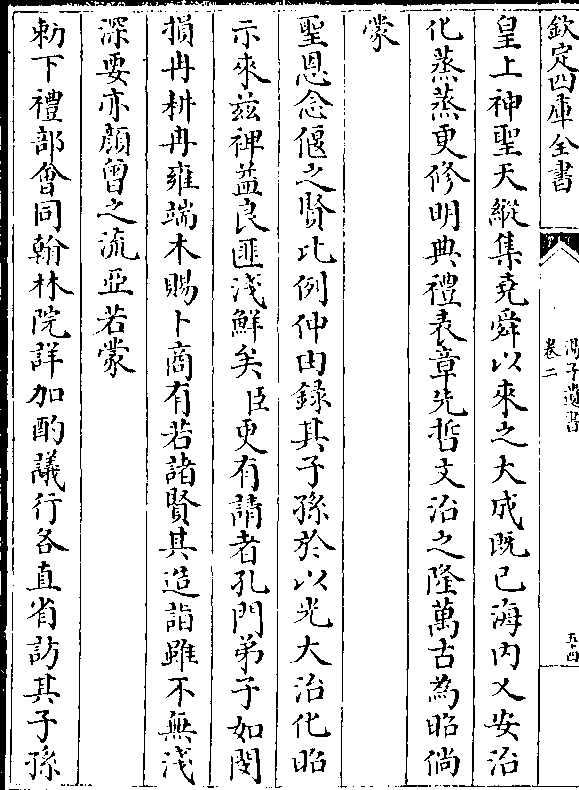 欽定四庫全書
湯子遺書
卷二
五十四
皇上神聖天縱集堯舜以來之大成既已海内乂安治
化蒸蒸更修明典禮表章先哲文治之隆萬古為昭倘
蒙
聖恩念偃之賢比例仲由録其子孫於以光大治化昭
示來兹裨益良匪淺鮮矣臣更有請者孔門弟子如閔
損冉耕冉雍端木賜卜商有若諸賢其造詣雖不無淺
深要亦顔曾之流亞若蒙
勅下禮部會同翰林院詳加酌議行各直省訪其子孫